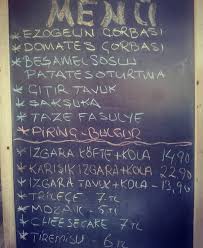 MENÜ
* EZOGELİN ÇORBASI
* DOMATES ÇORBASI
* BEŞAMEL SOSLU
PATATES OTURTMA
* ÇITIR TAVUK
* ŞAKŞUKA
* TAZE FASULYE
* PİRİNÇ-BULGUR
* IZGARA KÖFTE+KOLA 14,90
* KARIŞIK IZGARA+KOLA 22,90
* IZGARA TAVUK+KOLA - 13,90
* TRİLEÇE 7 TL
* MOZAİK - 5 TL
* CHEESECAKE 7 TL
* TİREMİSU - 6 TL